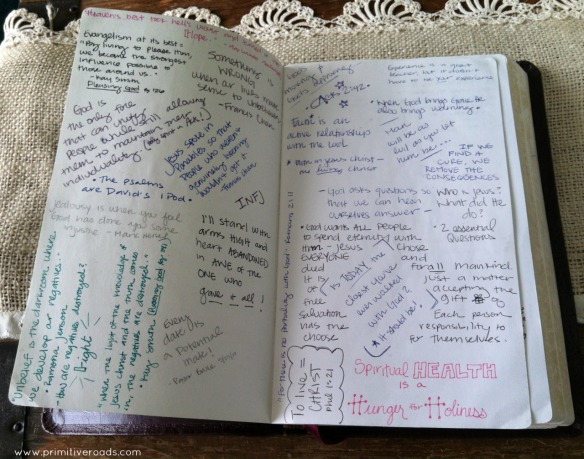 Heaven's best
Hope.
Evangelism at its best -
"By living to please Him,
we become the strongest
influence possible to
those around us."
- Kay Smith
Pleasing God
Something's
WRONG
when our lives make
sense to unbelievers.
- Francis Chan
God is
the only one
that can unify
people while still allowing
them to maintain their
individuality.
Jesus spoke in
Parables so that
people who weren't
genuinely hungry
wouldn't get it.
Francis Chan
• The Psalms
are David's iPod.
INFJ
Jealousy is when you feel
God has done you some
injustice -
I'll stand with
arms high and
heart ABANDONED
in AWE of the
ONE who
gave it all!
Unbelief is the darkroom where
we develop our negatives.
How are negatives destroyed?
Light
when the light of the knowledge of
Jesus Christ and the truth comes
in, the negatives are destroyed.
Kay Smith
Every
date is
a potential
mate.
Acts 2:42
Experience is a great
teacher, but it doesn't
have to be your experience
Faith is an
active relationship
with the Lord
• When God brings grace He
also brings warning.
Man
will be as
evil as you let
him be...
IF WE
FIND A
CURE, WE
REMOVE THE
CONSEQUENCES
- You ask questions so
that we can hear
ourselves answer -
Who is Jesus?
What did He
do?
• 2 essential
Questions
"For there is no partiality with God" Romans 2:11
• God wants ALL People
to spend eternity with
Him - Jesus chose
EVERYONE and
died for all mankind.
It is just a matter
of accepting the
Free gift of
Salvation. Each person
has the responsibility to
choose for themselves.
is TODAY the
closest you've
ever walked
with God?
it should be!
To live =
CHRIST
Phil 1:21
Spiritual HEALTH
is a
Hunger for Holiness
www.primitiveroads.com